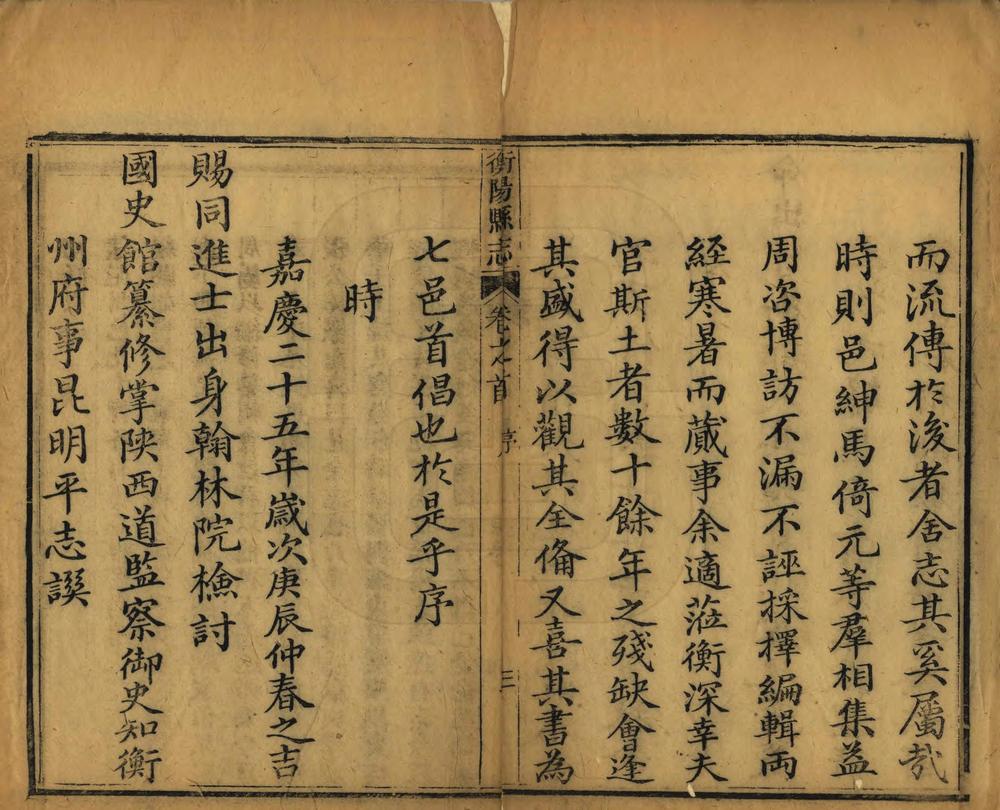 而流傳於後者舍志其奚屬哉
時則邑紳馬倚元等羣相集益
周咨博訪不漏不誣採擇編輯両
經寒暑而蕆事余適蒞衡深幸夫
官斯土者數十餘年之殘缺會逢
其盛得以觀其全俻又喜其書為
衡陽縣志 卷之首 序 三
七邑首倡也於是乎序
時
嘉慶二十五年歲次庚辰仲春之吉
賜同進士出身翰林院檢討
國史館纂修掌陕西道監察御史知衡
州府事昆明平志譔